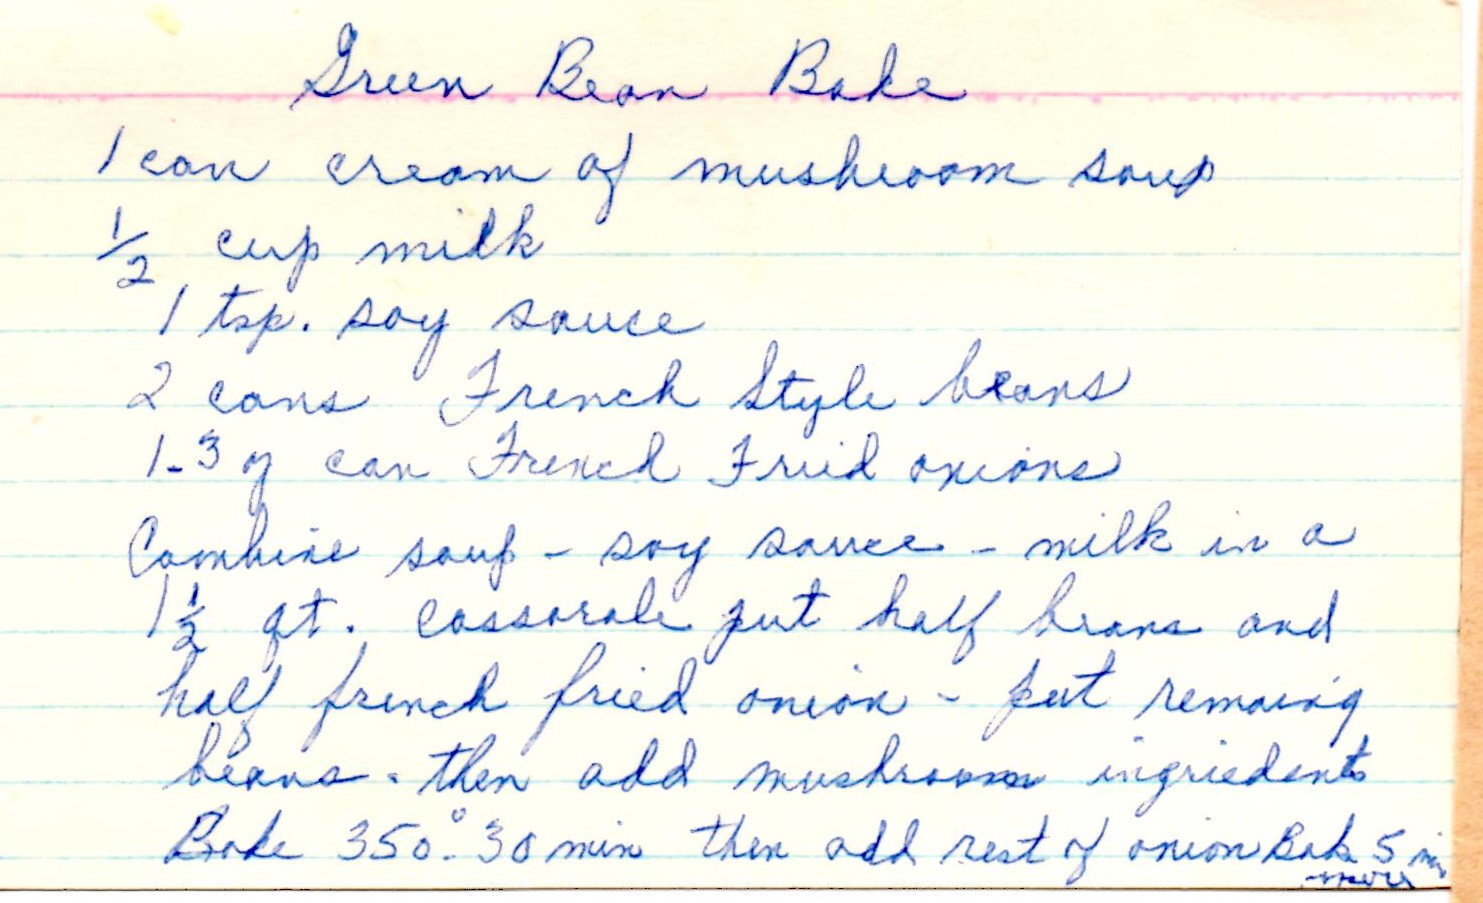 Green Bean Bake
1 can cream of mushroom soup
1/2 cup milk
1 tsp. soy sauce
2 cans French Style beans
1-3 oz can French Fried onions
Combine soup - soy sauce - milk in a
1 1/2 qt. cassorole put half beans and
half french fried onion - put remaing
beans. then add mushroom ingriedents
Bake 350° 30 min then add rest of onion Bake 5 min
more